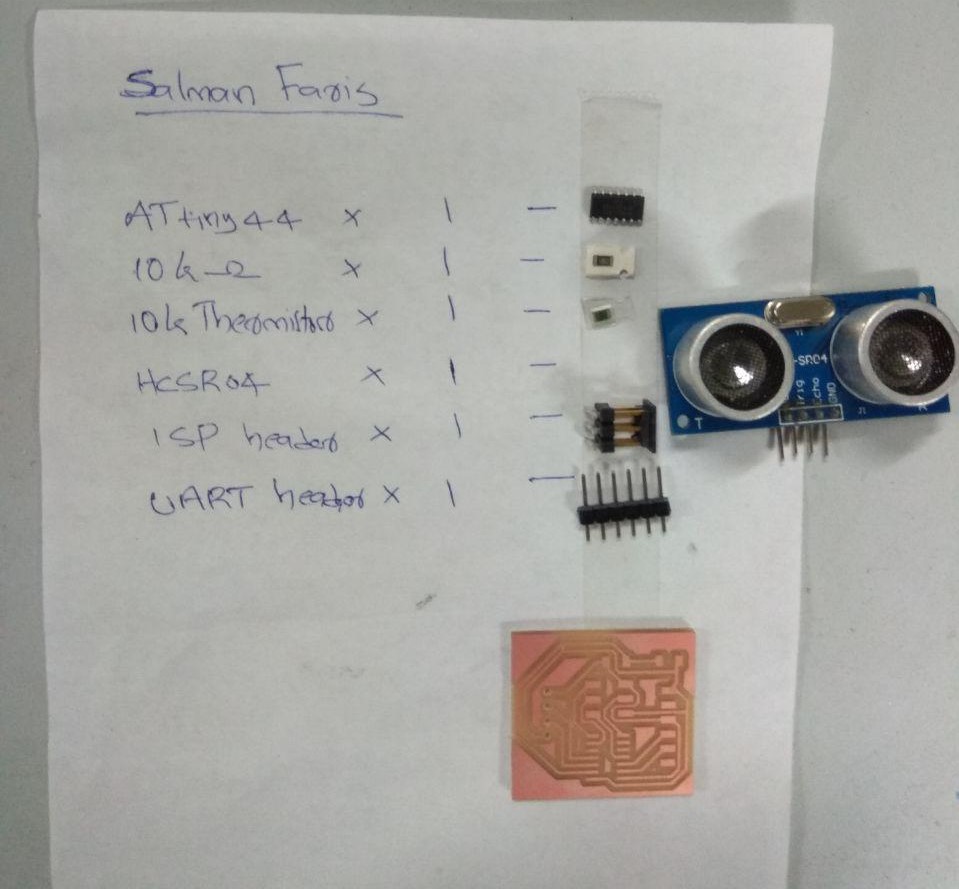 Salman Faris
ATtiny44 x 1 —
10k Ω x 1 —
10k Thermistor x 1 —
HCSR04 x 1 —
ISP header x 1 —
UART header x 1 —
-SR04
Trig
Echo
GND
T
R
J1
Y1